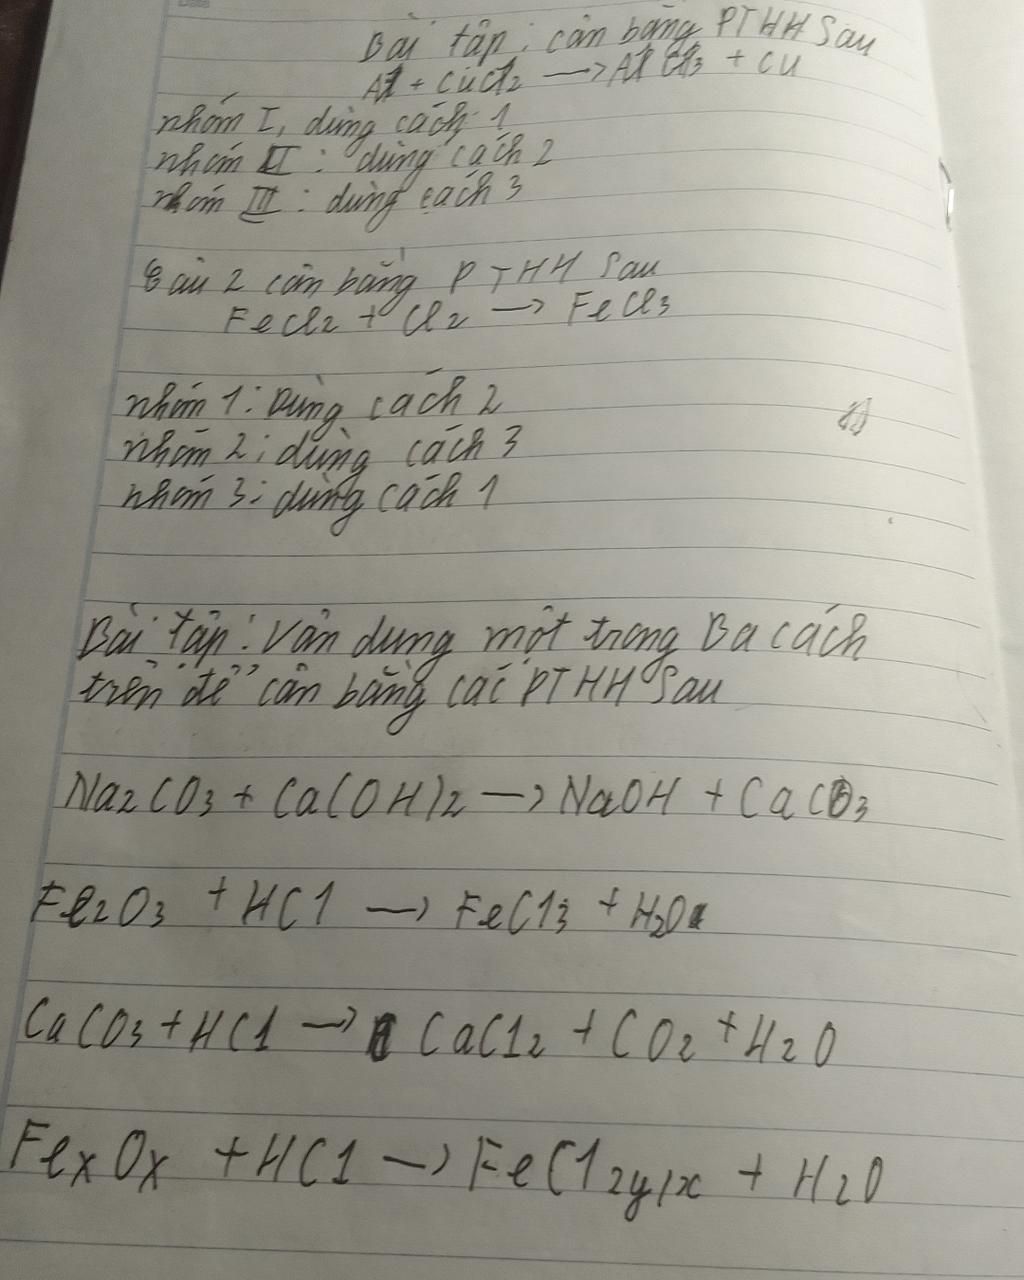 Bài tập: cân bằng PTHH sau
Al + CuCl2 → AlCl3 + Cu
nhóm I, dùng cách 1
nhóm II: dùng cách 2
nhóm III: dùng cách 3
Câu 2 cân bằng PTHH sau
FeCl2 + Cl2 → FeCl3
nhóm 1: Dùng cách 2
nhóm 2: dùng cách 3
nhóm 3: dùng cách 1
Bài tập: Vận dụng một trong Ba cách
trên để cân bằng các PTHH sau
Na2CO3 + Ca(OH)2 → NaOH + CaCO3
Fe2O3 + HCl → FeCl3 + H2O
CaCO3 + HCl → CaCl2 + CO2 + H2O
FexOx + HCl → FeCl2y/x + H2O